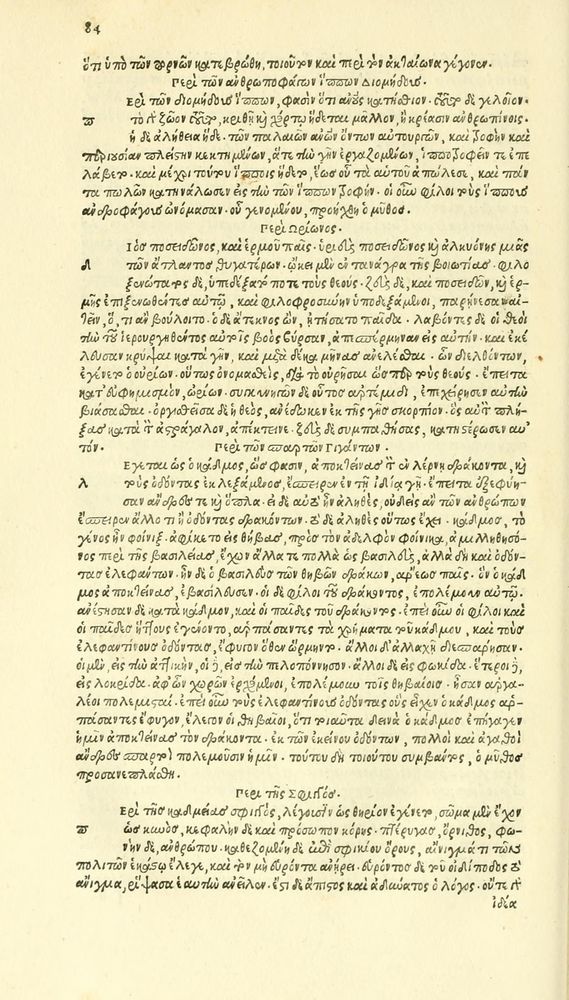 84
ὅτι ὑπὸ τῶν κυνῶν κατεβρώθη, τοιοῦτον καὶ περὶ τὸν ἀκταίωνα γέγονεν.
Περὶ τῶν ἀνθρωποφάγων ἵππων Διομήδους.
Ερὶ τῶν διομήδους ἵππων, φασὶν ὅτι ἀνους κατήσθιον. τοῦτο δὲ γελοῖον.
π τὸ γὰρ ζῶον τοῦτο, κριθῇ καὶ χόρτῳ ἥδεται μᾶλλον, ἢ κρέασιν ἀνθρωπίνοις.
ἡ δὲ ἀλήθεια ἥδε. τῶν παλαιῶν ἀνων ὄντων αὐτουργῶν, καὶ τροφὴν καὶ
περιουσίαν πλείστην κεκτημένων, ἅτε τὴν γῆν ἐργαζομένων, ἱπποτροφεῖν τις ἐπε
λάβετο. καὶ μέχρι τούτου ἵπποις ἥδετο, ἕως οὗ τὰ αὑτοῦ ἀπώλεσε, καὶ πάν
τα πωλῶν κατηνάλωσεν εἰς τὴν τῶν ἵππων τροφήν. οἱ οὖν φίλοι τοὺς ἵππους
ἀνδροφάγους ὠνόμασαν. οὗ γενομένου, προήχθη ὁ μῦθος.
Περὶ Ωρίωνος.
Ιὸς ποσειδῶνος, καὶ ἑρμοῦ παῖς. ὑριεὺς ποσειδῶνος καὶ ἀλκυόνης μιᾶς
Δ τῶν ἄτλαντος θυγατέρων. ᾤκει μὲν ἐν τανάγρα τῆς βοιωτίας. φιλο
ξενώτατος δὲ, ὑπεδέξατό ποτε τοὺς θεούς. ζεὺς δὲ, καὶ ποσειδῶν, καὶ ἑρ-
μῆς ἐπιξενωθέντες αὐτῷ, καὶ φιλοφροσύνην ὑποδεξάμενοι, παρῄνεσαν αἰ-
τεῖν, ὅ, τι ἂν βούλοιτο. ὁ δὲ ἄτεκνος ὢν, ᾐτήσατο παῖδα. λαβόντες δὲ οἱ θεοὶ
τὴν τοῦ ἱερουργηθέντος αὐτοῖς βοὸς βύρσαν, ἀπεσπέρμηναν εἰς αὐτήν. καὶ ἐκέ
λευσαν κρύψαι κατὰ γῆν, καὶ μετὰ δέκα μῆνας ἀνελέσθαι. ὧν διελθόντων,
ἐγένετο ὁ οὐρίων. οὕτως ὀνομασθεὶς, διὰ τὸ οὐρῆσαι ὥσπερ τοὺς θεούς. ἔπειτα
κατ' εὐφημισμὸν, ὠρίων. συγκυνηγῶν δὲ οὗτος ἀρτέμιδι, ἐπεχείρησεν αὐτὴν
βιάσασθαι. ὀργισθεῖσα δὲ ἡ θεὸς, ἀνέδωκεν ἐκ τῆς γῆς σκορπίον. ὃς αὐτὸν πλή-
ξας κατὰ τὸν ἀστράγαλον, ἀπέκτεινε. ζεὺς δὲ συμπαθήσας, κατηστέρωσεν αὐ
τόν. Περὶ τῶν σπαρτῶν Γιγάντων.
Εγεται ὡς ὁ κάδμος, ὥς φασιν, ἀποκτείνας τὸν ἐν λέρνῃ δράκοντα, καὶ
λ τοὺς ὀδόντας ἐκλεξάμενος, ἔσπειρεν ἐν τῇ ἰδίᾳ γῇ. ἔπειτα ἐξεφύη-
σαν ἄνδρες τε καὶ ὅπλα. εἰ δὲ αὐτὸ ἦν ἀληθὲς, οὐδεὶς ἂν τῶν ἀνθρώπων
ἔσπειρεν ἄλλο τι ἢ ὀδόντας δρακόντων. τὸ δὲ ἀληθὲς οὕτως ἔχει. κάδμος, τὸ
γένος ἦν φοίνιξ. ἀφίκετο εἰς θήβας, πρὸς τὸν ἀδελφὸν φοίνικα, ἁμιλληθησό-
νος περὶ τῆς βασιλείας, ἔχων ἄλλα τε πολλὰ ὡς βασιλεὺς, ἀλλὰ δὴ καὶ ὀδόν-
τας ἐλεφάντων. ἦν δὲ ὁ βασιλεὺς τῶν θηβῶν δράκων, ἄρεως παῖς. ὃν ὁ κάδ
μος ἀποκτείνας, ἐβασίλευσεν. οἱ δὲ φίλοι τοῦ δράκοντος, ἐπολέμουν αὐτῷ.
ἀνέστησαν δὲ κατὰ κάδμον, καὶ οἱ παῖδες τοῦ δράκοντος. ἐπεὶ οὖν οἱ φίλοι καὶ
οἱ παῖδες ἥττους ἐγένοντο, ἁρπάσαντες τὰ χρήματα τοῦ κάδμου, καὶ τοὺς
ἐλεφαντίνους ὀδόντας, ἔφυγον ὅθεν ὥρμηντο. ἄλλοι δ' ἀλλαχῆ διεσπάρησαν.
οἱ μὲν, εἰς τὴν ἀττικὴν, οἱ δὲ, εἰς τὴν πελοπόννησον. ἄλλοι δὲ εἰς φωκίδα. ἕτεροι δὲ,
εἰς λοκρίδα. ἀφ' ὧν χωρῶν ἐρχόμενοι, ἐπολέμουν τοῖς θηβαίοις. ἦσαν ἀργα-
λέοι πολεμισταί. ἐπεὶ οὖν τοὺς ἐλεφαντίνους ὀδόντας οὓς εἶχεν ὁ κάδμος ἁρ-
πάσαντες ἔφυγον, ἔλεγον οἱ θηβαῖοι, ὅτι τοιαῦτα δεινὰ ὁ κάδμος ἐπήγαγεν
ἡμῖν ἀποκτείνας τὸν δράκοντα. ἐκ τῶν ἐκείνου ὀδόντων, πολλοὶ καὶ ἀγαθοὶ
ἄνδρες σπαρτοὶ πολεμοῦσιν ἡμῖν. τούτου δὴ τοιούτου συμβάντος, ὁ μῦθος
προσανεπλάσθη.
Περὶ τῆς Σφιγγός.
Ερὶ τῆς καδμείας σφιγγὸς, λέγουσιν ὡς θηρίον ἐγένετο, σῶμα μὲν ἔχον
π ὡς κυνὸς, κεφαλὴν δὲ καὶ πρόσωπον κόρης. πτέρυγας, ὄρνιθος, φω-
νὴν δὲ, ἀνθρώπου. καθεζομένη δὲ ἐπὶ σφικίου ὄρους, αἴνιγμά τι τῶν
πολιτῶν ἑκάστῳ ἔλεγε, καὶ τὸν μὴ εὑρόντα ἀνῄρει. εὑρόντος δὲ τοῦ οἰδίποδος τὸ
αἴνιγμα, ῥίψασα ἑαυτὴν ἀνεῖλεν. ἔστι δὲ ἄπιστος καὶ ἀδύνατος ὁ λόγος. οὔτε γὰρ
ἰδέα